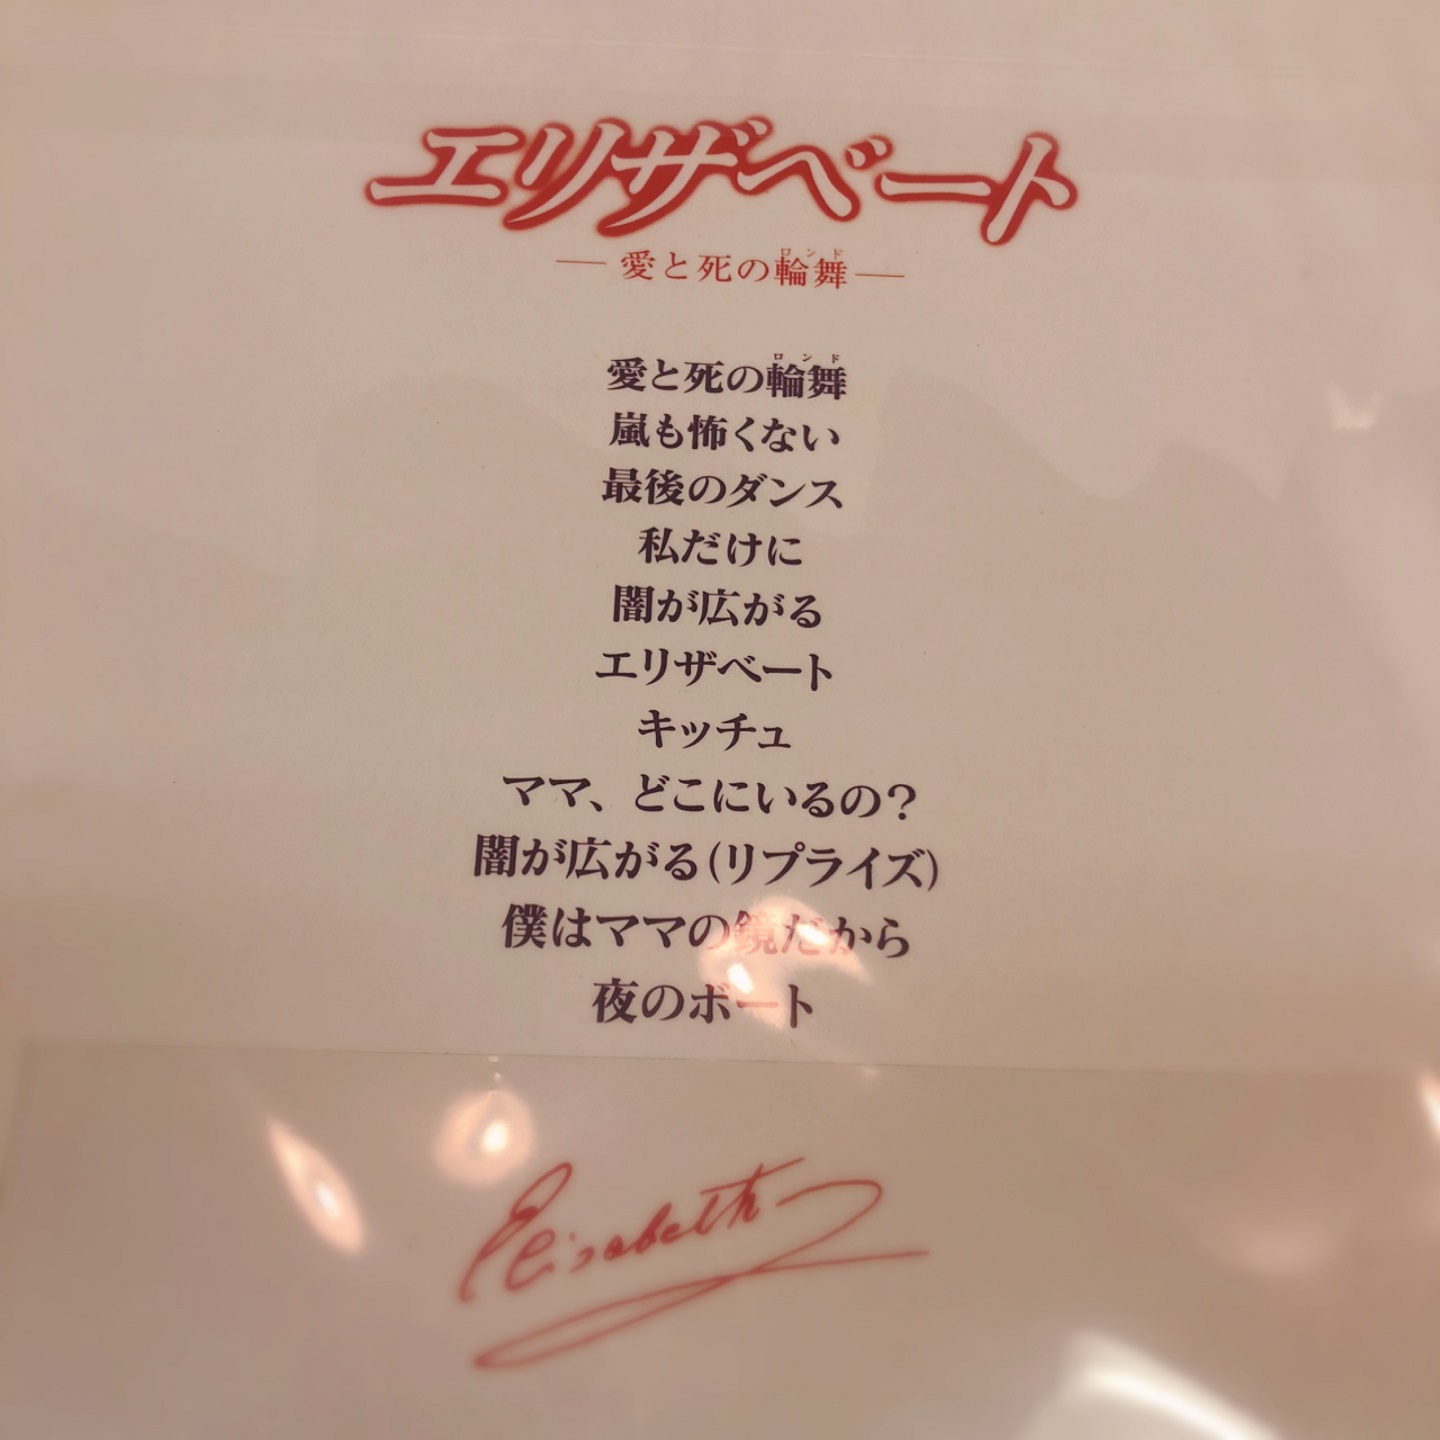 エリザベート
―愛と死の輪舞―
愛と死の輪舞
嵐も怖くない
最後のダンス
私だけに
闇が広がる
エリザベート
キッチュ
ママ、どこにいるの？
闇が広がる(リプライズ)
僕はママの鏡だから
夜のボート
Elisabeth